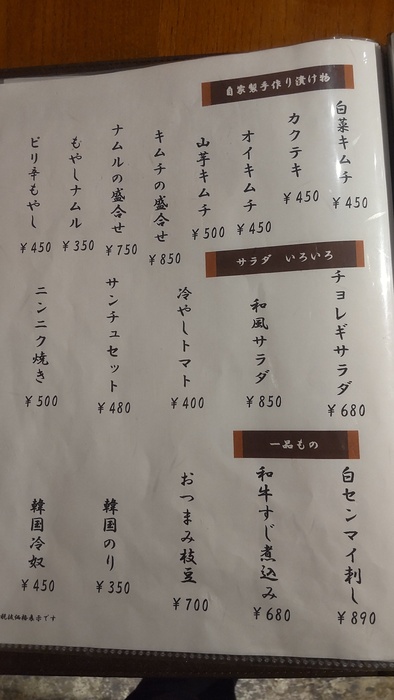 自家製手作り漬け物
白菜キムチ
¥450
カクテキ
¥450
オイキムチ
¥450
山芋キムチ
¥500
キムチの盛合せ
¥850
ナムルの盛合せ
¥750
もやしナムル
¥350
ピリ辛もやし
¥450
サラダ いろいろ
チョレギサラダ
¥680
和風サラダ
¥850
冷やしトマト
¥400
サンチュセット
¥480
ニンニク焼き
¥500
一品もの
白センマイ刺し
¥890
和牛すじ煮込み
¥680
おつまみ枝豆
¥700
韓国のり
¥350
韓国冷奴
¥450
税抜価格表示です